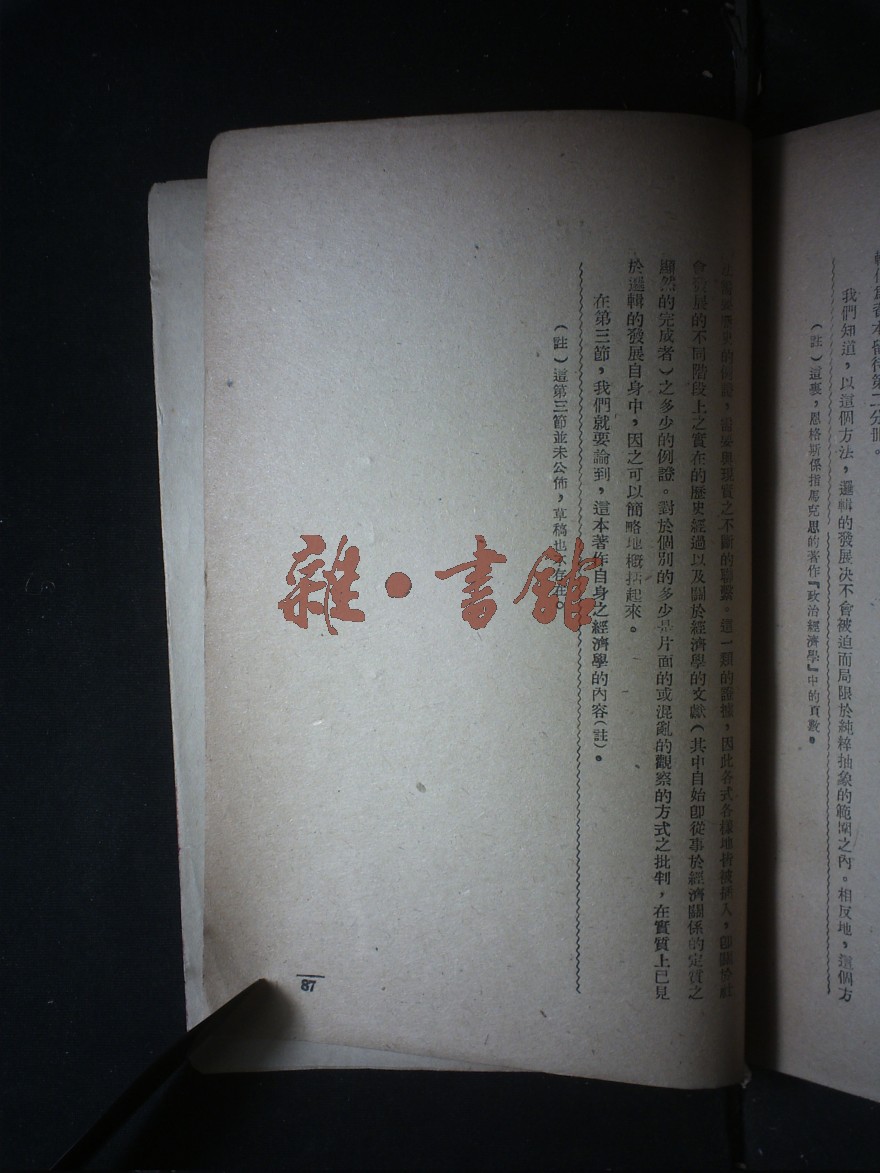 我們知道，以這個方法，邏輯的發展決不會被迫而局限於純粹抽象的範圍之內。相反地，這個方
（註）這裏，恩格斯係指馬克思的著作『政治經濟學』中的頁數。
歷史的例證，需要與現實之不斷的聯繫。這一類的證據，因此各式各樣地被插入，卽關於社
會發展的不同階段上之實在的歷史經過以及關於經濟學的文獻（其中自始卽從事於經濟關係的定質之
顯然的完成者）之多少的例證。對於個別的多少是片面的或混亂的觀察的方式之批判，在實質上已見
於邏輯的發展自身中，因之可以簡略地概括起來。
在第三節，我們就要論到，這本著作自身之經濟學的內容（註）。
（註）這第三節並未公佈，草稿也不存在。
87
雜·書館